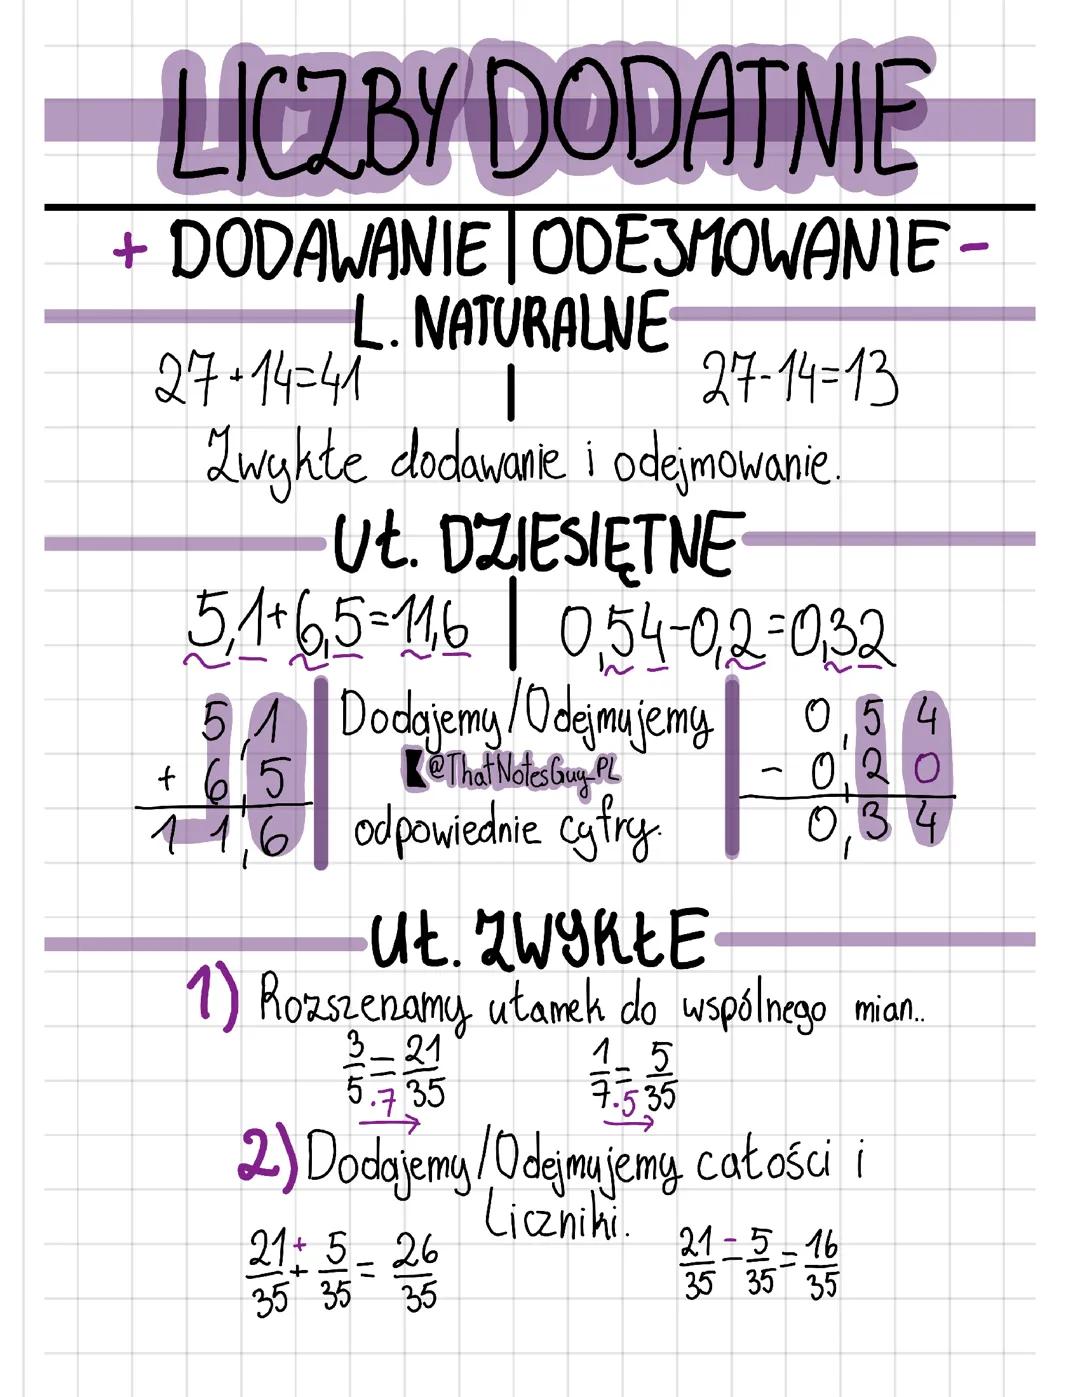 LICZBY DODATNIE
+ DODAWANIE | ODEJMOWANIE -
L. NATURALNE
27+14=41 | 27-14=13
Zwykłe dodawanie i odejmowanie.
UŁ. DZIESIĘTNE
5,1+6,5=11,6 | 0,54-0,2=0,32
5,1
+ 6,5
11,6
Dodajemy/Odejmujemy
@ThatNotesGuy_PL
odpowiednie cyfry.
0,54
- 0,20
0,34
UŁ. ZWYKŁE
1) Rozszerzamy ułamek do wspólnego mian..
3/5 = 21/35 1/7 = 5/35
·7 ·5
2) Dodajemy/Odejmujemy całości i
Liczniki.
21/35 + 5/35 = 26/35 21/35 - 5/35 = 16/35